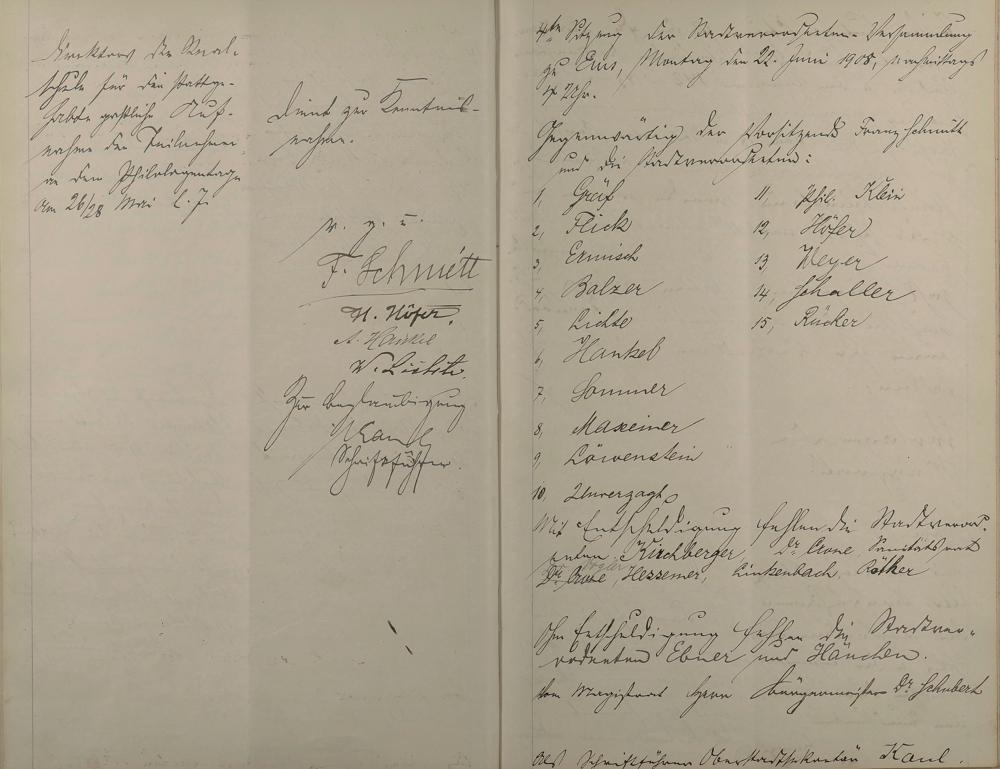 Direktors der Real-
schule für die stattge-
habte gastliche Auf-
nahme der Teilnehmer
an dem Philologentage
am 26/28 Mai l. J.
dient zur Kenntnis-
nahme.
v. g. u.
F. Schmitt
H. Höfer.
A. Hankel
W. Lichte.
Zur Beglaubigung
Kaul
Schriftführer.
4te Sitzung der Stadtverordneten-Versammlung
zu Ems, Montag den 22. Juni 1908, nachmittags
Uhr.
Gegenwärtig der Vorsitzende Franz Schmitt
und die Stadtverordneten:
1, Gräf
2, Flick
3, Ermisch
4, Balzer
5, Lichte
6, Hankel
7, Sommer
8, Maxeiner
9, Löwenstein
10, Unverzagt
11, Phil. Klein
12, Höfer
13, Weyer
14, Schaller
15, Rücker
Mit Entschuldigung fehlen die Stadtverord-
neten Kirchberger, Dr Crone, Sanitätsrat
Dr Vogler, Hessemer, Linkenbach, Röther
Ohne Entschuldigung fehlen die Stadtver-
ordneten Ebner und Hänchen.
Vom Magistrat Herr Bürgermeister Dr Schubert
Als Schriftführer Oberstadtsekretär Kaul.